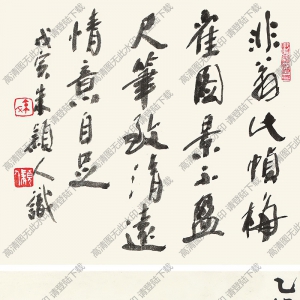 非翁此幀梅
雀圖景不盈
尺筆致清遠
情意自足
戊寅朱穎人識